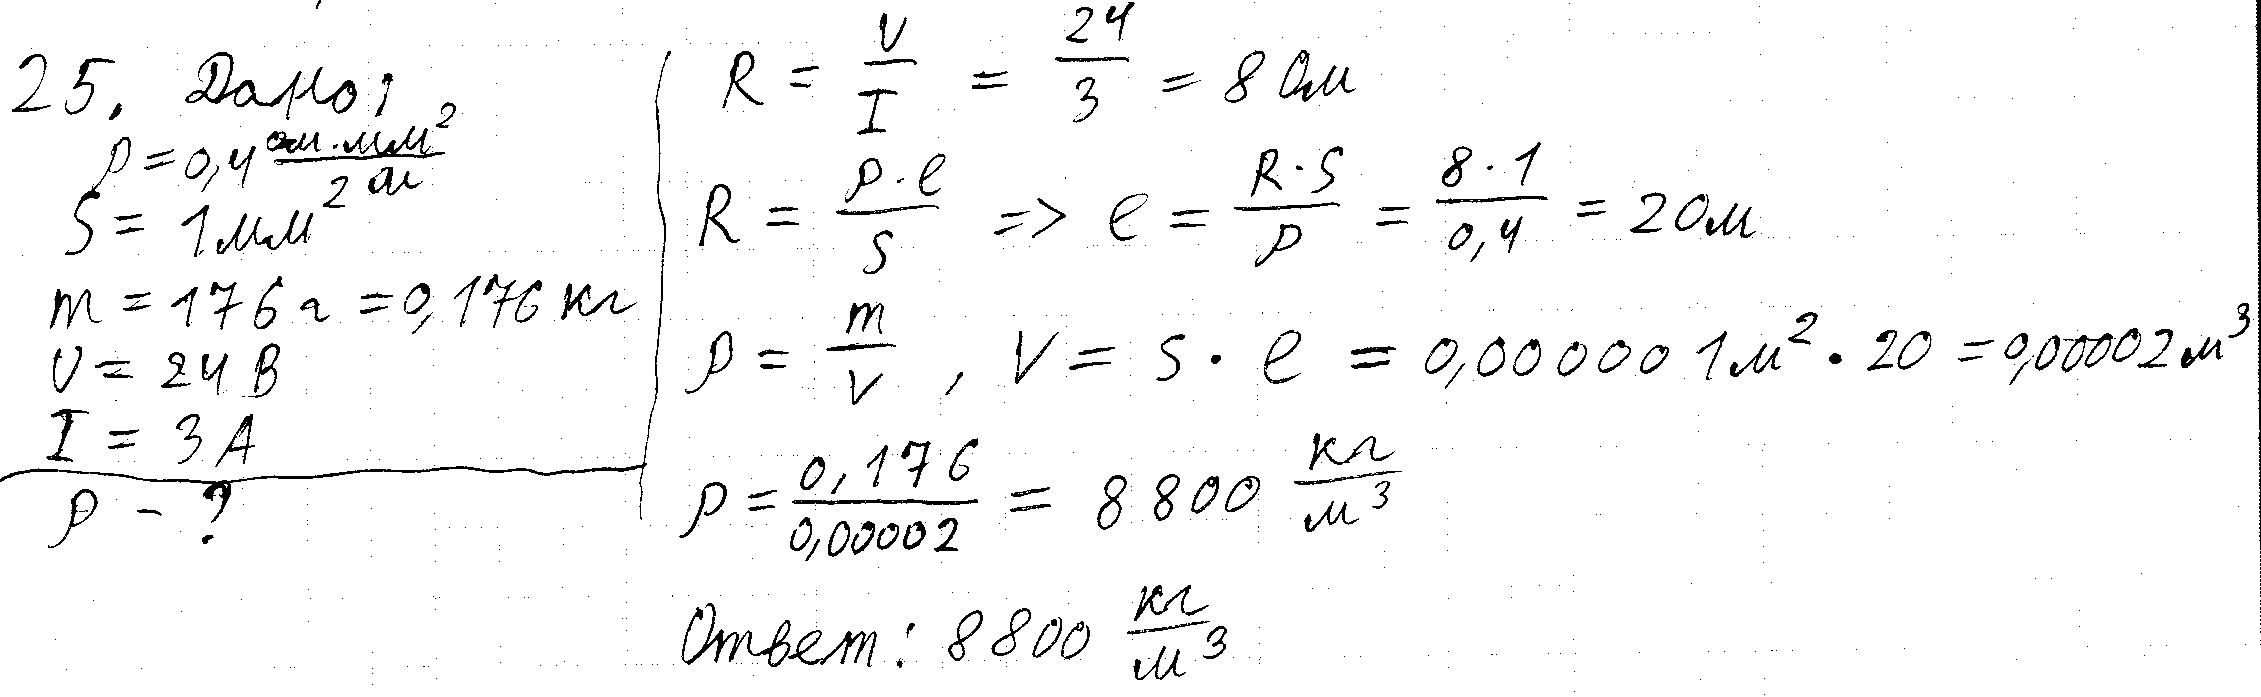 25. Дано:
ρ = 0,4 ом·мм²/м
S = 1 мм²
m = 176 г = 0,176 кг
U = 24 В
I = 3 А
ρ - ?
R = U/I = 24/3 = 8 Ом
R = ρ·l/S => l = R·S/ρ = 8·1/0,4 = 20 м
ρ = m/V , V = S · l = 0,000001 м² · 20 = 0,00002 м³
ρ = 0,176/0,00002 = 8800 кг/м³
Ответ: 8800 кг/м³